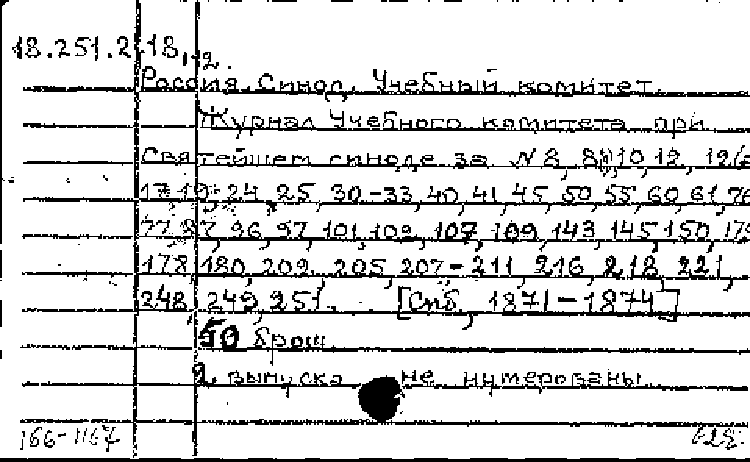 18.251.2.18,12.
Россия. Синод. Учебный комитет.
Журнал Учебного комитета при
Святейшем синоде за № 2, 10, 12,
24, 25, 30-33, 40, 41, 45, 50, 55, 60, 61, 76
96, 97, 101, 102, 107, 109, 143, 145, 150,
178, 180, 202, 205, 207-211, 216, 218, 221,
248, 249, 251. [Спб, 1871-1874]
50 брош.
2 выпуска не нумерованы
166-1167 628.